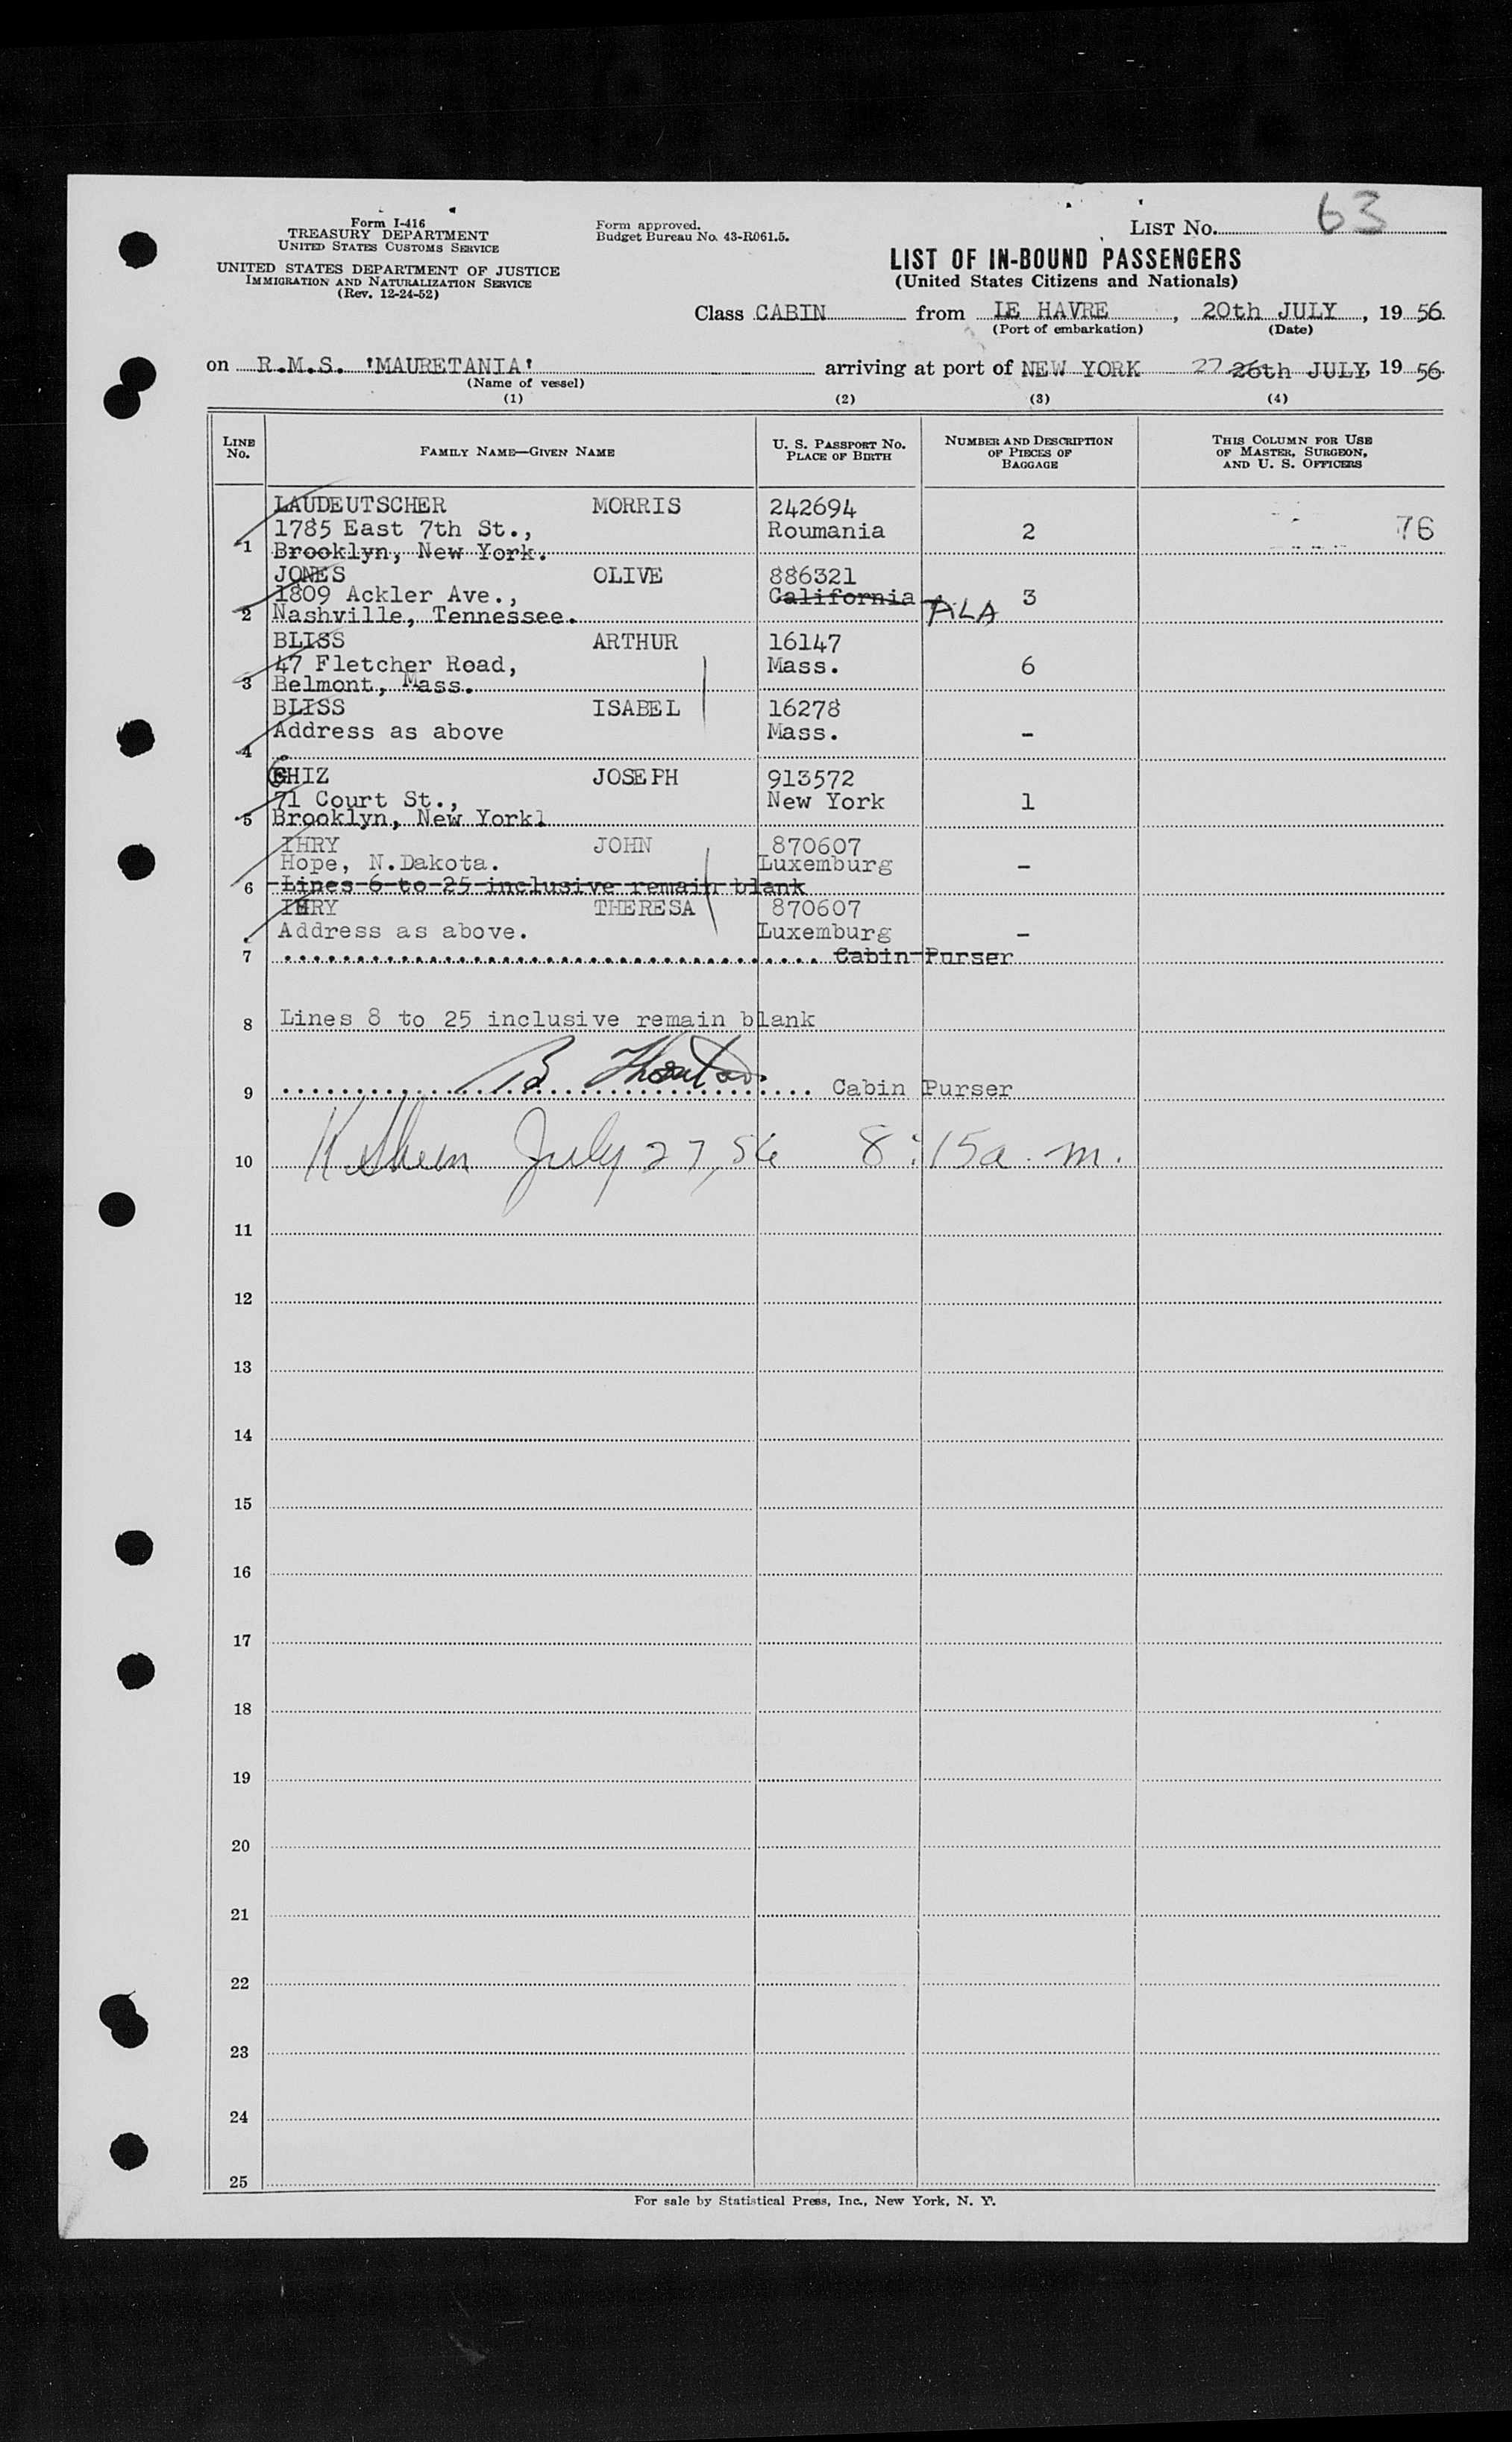 Form I-416
TREASURY DEPARTMENT
UNITED STATES CUSTOMS SERVICE
UNITED STATES DEPARTMENT OF JUSTICE
IMMIGRATION AND NATURALIZATION SERVICE
(Rev. 12-24-52)
Form approved.
Budget Bureau No. 43-R061.5.
LIST No. 63
LIST OF IN-BOUND PASSENGERS
(United States Citizens and Nationals)
Class CABIN from LE HAVRE, 20th JULY, 19 56
(Port of embarkation) (Date)
on R.M.S. 'MAURETANIA' arriving at port of NEW YORK 27 26th JULY, 19 56
(Name of vessel)
(1) (2) (3) (4)
LINE No. FAMILY NAME—GIVEN NAME U. S. PASSPORT No. PLACE OF BIRTH NUMBER AND DESCRIPTION OF PIECES OF BAGGAGE THIS COLUMN FOR USE OF MASTER, SURGEON, AND U. S. OFFICERS
LAUDEUTSCHER MORRIS 242694
1785 East 7th St., Roumania 2 76
1 Brooklyn, New York.
JONES OLIVE 886321
1809 Ackler Ave., California ALA 3
2 Nashville, Tennessee.
BLISS ARTHUR 16147
47 Fletcher Road, Mass. 6
3 Belmont, Mass.
BLISS ISABEL 16278
Address as above Mass. -
4
GHIZ JOSEPH 913572
71 Court St., New York 1
5 Brooklyn, New York.
IHRY JOHN 870607
Hope, N.Dakota. Luxemburg -
6 Lines 6 to 25 inclusive remain blank
IHRY THERESA 870607
Address as above. Luxemburg -
7 Cabin Purser
8 Lines 8 to 25 inclusive remain blank
9 B Cabin Purser
10 July 27, 56 8:15 a.m.
11
12
13
14
15
16
17
18
19
20
21
22
23
24
25
For sale by Statistical Press, Inc., New York, N. Y.